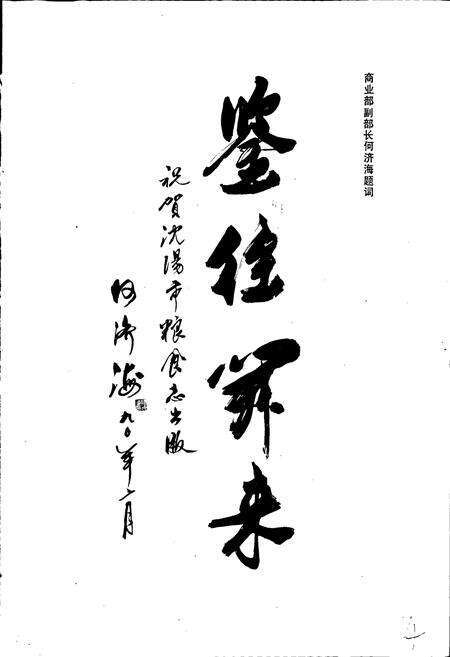 商业部副部长何济海题词
鉴往开来
祝贺沈阳市粮食志出版
何济海
九〇年二月